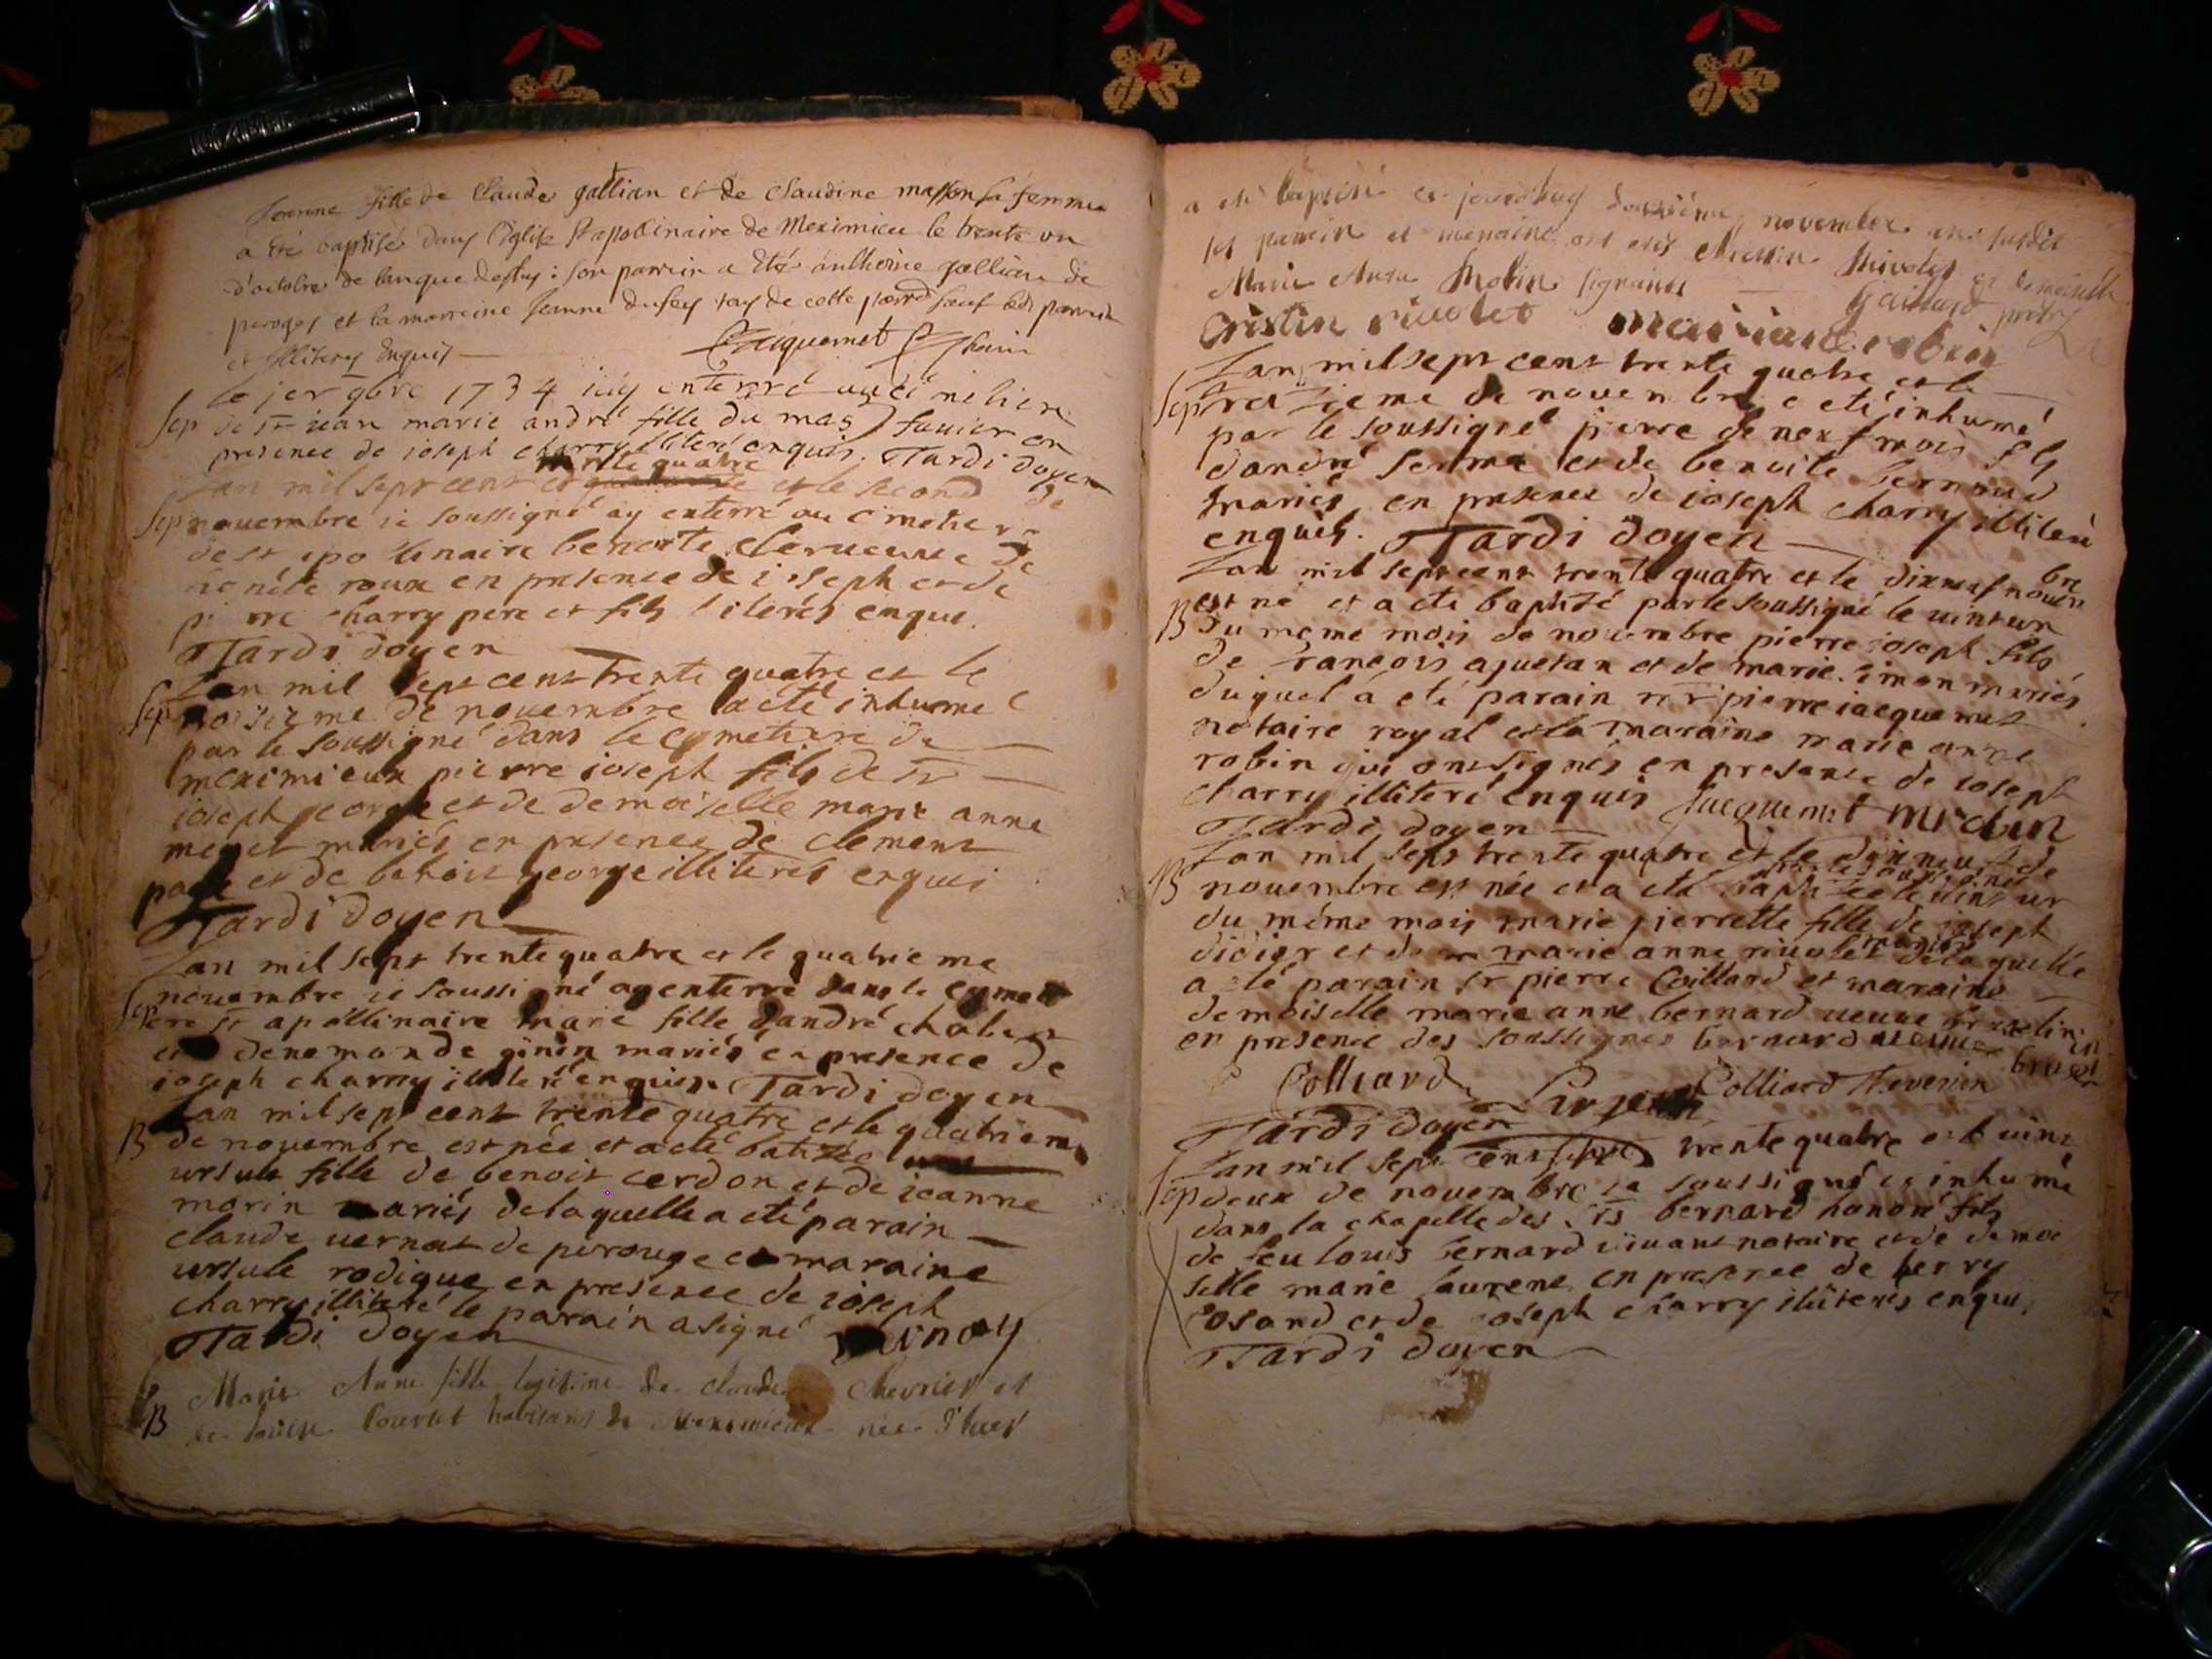 Jeanne fille de Claude gallian et de Claudine masson sa femme
a été baptisée dans l'église St apollinaire de Meximieu le trente un
d'octobre de l'an que dessus: son parrein a été anthoine gallian de
peroges et la marreine Jeanne dufey tous de cette parr sauf led parrein
et illiterés enquis Jacquemet
le 1er 9bre 1734 iay enterré au cimetiere
Sep de st jean marie andré fille du mas favier en
presence de ioseph charry illiteré enquis. Tardi doyen
trente quatre
Lan mil sept cent et le second de
Sep novembre ie soussigné ay enterré au cimetiere
de st apollinaire benoite veuve de
roux en presence de ioseph et de
pierre charry pere et fils iliterés enquis.
Tardi doyen
Lan mil sept cens trente quatre et le
Sep troisieme de novembre a eté inhumé
par le soussigné dans le cymetiere de
meximieux pierre ioseph fils de sr
ioseph george et de demoiselle marie anne
mariés en presence de clement
et de benoit george illiterés enquis
Tardi doyen
Lan mil sept trente quatre et le quatrieme
novembre ie soussigné ay enterré dans le cyme
Sep tere st apollinaire marie fille dandré
et mariés en presence de
ioseph charry illiteré enquis. Tardi doyen
Lan mil sept cent trente quatre et le quatrieme
B de novembre est née et a eté batizée
ursule fille de benoit cerdon et de ieanne
morin mariés de laquelle a eté parain
claude de perouge et maraine
ursule rodigue en presence de ioseph
charry illiteré le parain a signé
Tardi doyen
Marie Anne fille legitime de claude Chevrier et
B de habitans de Meximieux née d'hier
a eté baptisé ce jourd'huy novembre an susdit
ses parrein et marraine ont etés et demoiselle
Marie Anne Robin signants
cristin rivolet Gaillard pretre
Lan mil sept cens trente quatre et le
Sep treizieme de novembre a eté inhumé
par le soussigné pierre de neuf mois fils
dandré et de benoite bernoud
mariés en presence de ioseph charry illiteré
enquis. Tardi doyen
Lan mil sept cent trente quatre et le dixneuf novem bre
est né et a eté baptizé par le soussigné le vint un
B du meme mois de novembre pierre ioseph fils
de francois et de marie simon mariés
duquel a eté parain mr pierre iacquemet
notaire royal et la maraine marie anne
robin qui ont signés en presence de ioseph
charry illiteré enquis Jacquemet
Tardi doyen
Lan mil sept trente quatre et le dixneuf de
par le soussigné
B novembre est née et a eté baptizée le vint un
du même mois marie pierrette fille de ioseph
mariés
didier et de marie anne rivolet de laquelle
a eté parain sr pierre Colliard et maraine
demoiselle marie anne bernard veuve
en presence des soussignés bernard
Colliard Colliard Thevenin
Tardi doyen
Lan mil sept cens trente quatre et le vint
Sep deux de novembre ie soussigné ay inhumé
dans la chapelle des srs bernard honoré fils
de feu louis bernard vivant notaire et de demoi
selle marie laurene en presence de
et de ioseph charry illiterés enquis
Tardi doyen